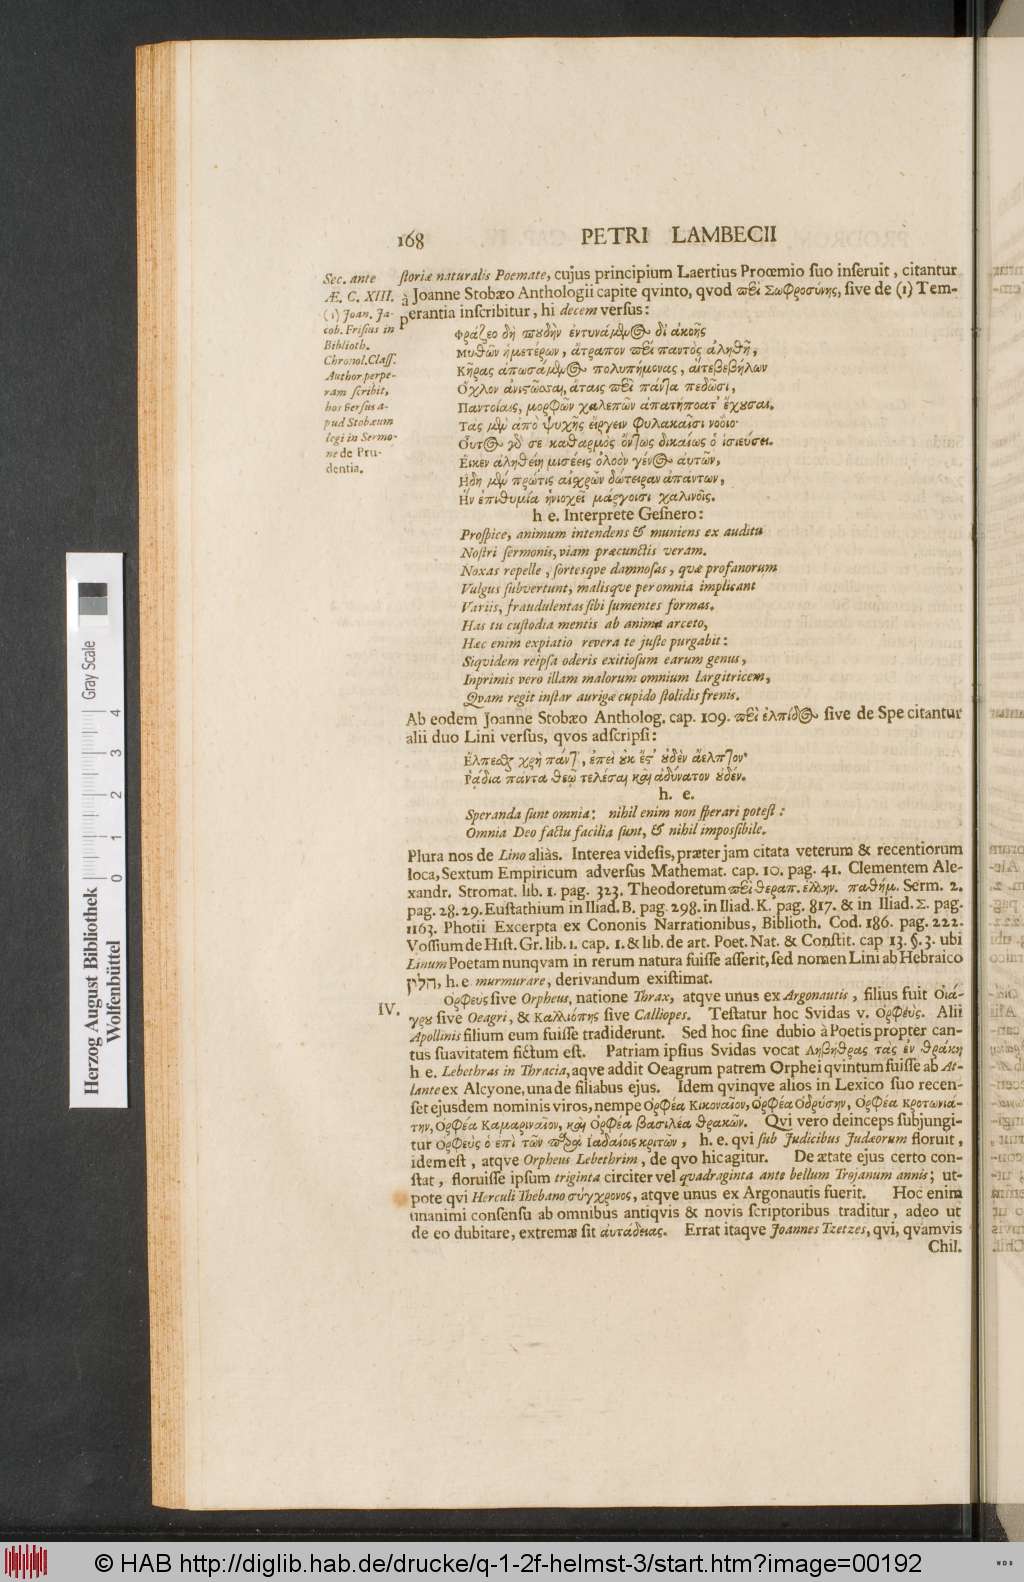 168 PETRI LAMBECII
Sec. ante
Æ. C. XIII.
(1) Joan. Ja-
cob. Frisius in
Biblioth.
Chronol. Class.
Author perpe-
ram scribit,
hos versus a-
pud Stobæum
legi in Sermo-
ne de Pru-
dentia.
storiæ naturalis Poemate, cujus principium Laertius Proœmio suo inseruit, citantur
à Joanne Stobæo Anthologii capite qvinto, qvod περὶ Σωφροσύνης, sive de (1) Tem-
perantia inscribitur, hi decem versus:
Φράζεο δὴ σπουδὴν ἐντυνάμενος δἰ ἀκοῆς
Μυθῶν ἡμετέρων, ἄτραπον περὶ παντὸς ἀληθῆ,
Κῆρας ἀπωσάμενος πολυπήμονας, αἵτε βεβήλων
Ὄχλον ἀνιστῶσαι, ἄταις περὶ πάντα πεδῶσι,
Παντοίαις, μορφῶν χαλεπῶν ἀπατήματ' ἔχουσαι.
Τὰς μὲν ἀπὸ ψυχῆς εἴργειν φυλακαῖσι νοῖο·
Οὗτος γάρ σε καθαρμὸς ὄντως δικαίως ὁ ἰσιεύσει.
Εἴκεν ἀληθείη μισέεις ὀλοὸν γένος αὐτῶν,
Ηδη μὲν πρώτις αἰσχρῶν δώτειραν ἁπάντων,
Ἣν ἐπιθυμία ἡνιοχεῖ μάργοισι χαλινοῖς.
h e. Interprete Gesnero:
Prospice, animum intendens & muniens ex auditu
Nostri sermonis, viam præcunctis veram.
Noxas repelle, sortesqve damnosas, qvæ profanorum
Vulgus subvertunt, malisqve per omnia implicant
Variis, fraudulentas sibi sumentes formas.
Has tu custodia mentis ab anima arceto,
Hæc enim expiatio revera te juste purgabit:
Siqvidem reipsa oderis exitiosum earum genus,
Inprimis vero illam malorum omnium largitricem,
Qvam regit instar aurigæ cupido stolidis frenis.
Ab eodem Joanne Stobæo Antholog. cap. 109. περὶ ἐλπίδος sive de Spe citantur
alii duo Lini versus, qvos adscripsi:
Ἔλπεσθαι χρὴ πάντ', ἐπεὶ οὐκ ἔς' οὐδὲν ἄελπτον·
Ῥάδια πάντα θεῷ τελέσαι καὶ ἀδύνατον οὐδέν.
h. e.
Speranda sunt omnia: nihil enim non sperari potest:
Omnia Deo factu facilia sunt, & nihil impossibile.
Plura nos de Lino aliàs. Interea videsis, præter jam citata veterum & recentiorum
loca, Sextum Empiricum adversus Mathemat. cap. 10. pag. 41. Clementem Ale-
xandr. Stromat. lib. 1. pag. 323. Theodoretum περὶ θεραπ. ἑλλην. παθήμ. Serm. 2.
pag. 28. 29. Eustathium in Iliad. B. pag. 298. in Iliad. K. pag. 817. & in Iliad. Σ. pag.
1163. Photii Excerpta ex Cononis Narrationibus, Biblioth. Cod. 186. pag. 222.
Vossium de Hist. Gr. lib. 1. cap. 1. & lib. de art. Poet. Nat. & Constit. cap 13. §. 3. ubi
Linum Poetam nunqvam in rerum natura fuisse asserit, sed nomen Lini ab Hebraico
הלין, h. e murmurare, derivandum existimat.
IV. Ορφεὺς sive Orpheus, natione Thrax, atqve unus ex Argonautis, filius fuit Οἰά-
γρου sive Oeagri, & Καλλιόπης sive Calliopes. Testatur hoc Svidas v. Ορφέυς. Alii
Apollinis filium eum fuisse tradiderunt. Sed hoc sine dubio à Poetis propter can-
tus suavitatem fictum est. Patriam ipsius Svidas vocat Ληβήθρας τὰς ἐν θράκη
h e. Lebethras in Thracia, aqve addit Oeagrum patrem Orphei qvintum fuisse ab At-
lante ex Alcyone, una de filiabus ejus. Idem qvinqve alios in Lexico suo recen-
set ejusdem nominis viros, nempe Ορφέα Κικοναῖον, Ορφέα Οδρύσην, Ορφέα Κροτωνιά-
την, Ορφέα Καμαριναῖον, καὶ Ορφέα βασιλέα θρακῶν. Qvi vero deinceps subjungi-
tur Ορφεὺς ὁ ἐπὶ τῶν παρὰ Ἰαδαίοις κριτῶν, h. e. qvi sub Judicibus Judæorum floruit,
idem est, atqve Orpheus Lebethrim, de qvo hic agitur. De ætate ejus certo con-
stat, floruisse ipsum triginta circiter vel quadraginta ante bellum Trojanum annis; ut-
pote qvi Herculi Thebano σύγχρονος, atqve unus ex Argonautis fuerit. Hoc enim
unanimi consensu ab omnibus antiqvis & novis scriptoribus traditur, adeo ut
de eo dubitare, extremæ sit αυτάδειας. Errat itaqve Joannes Tzetzes, qvi, qvamvis
Chil.
Herzog August Bibliothek
Wolfenbüttel
Gray Scale
0 1 2 3 4
© HAB http://diglib.hab.de/drucke/q-1-2f-helmst-3/start.htm?image=00192